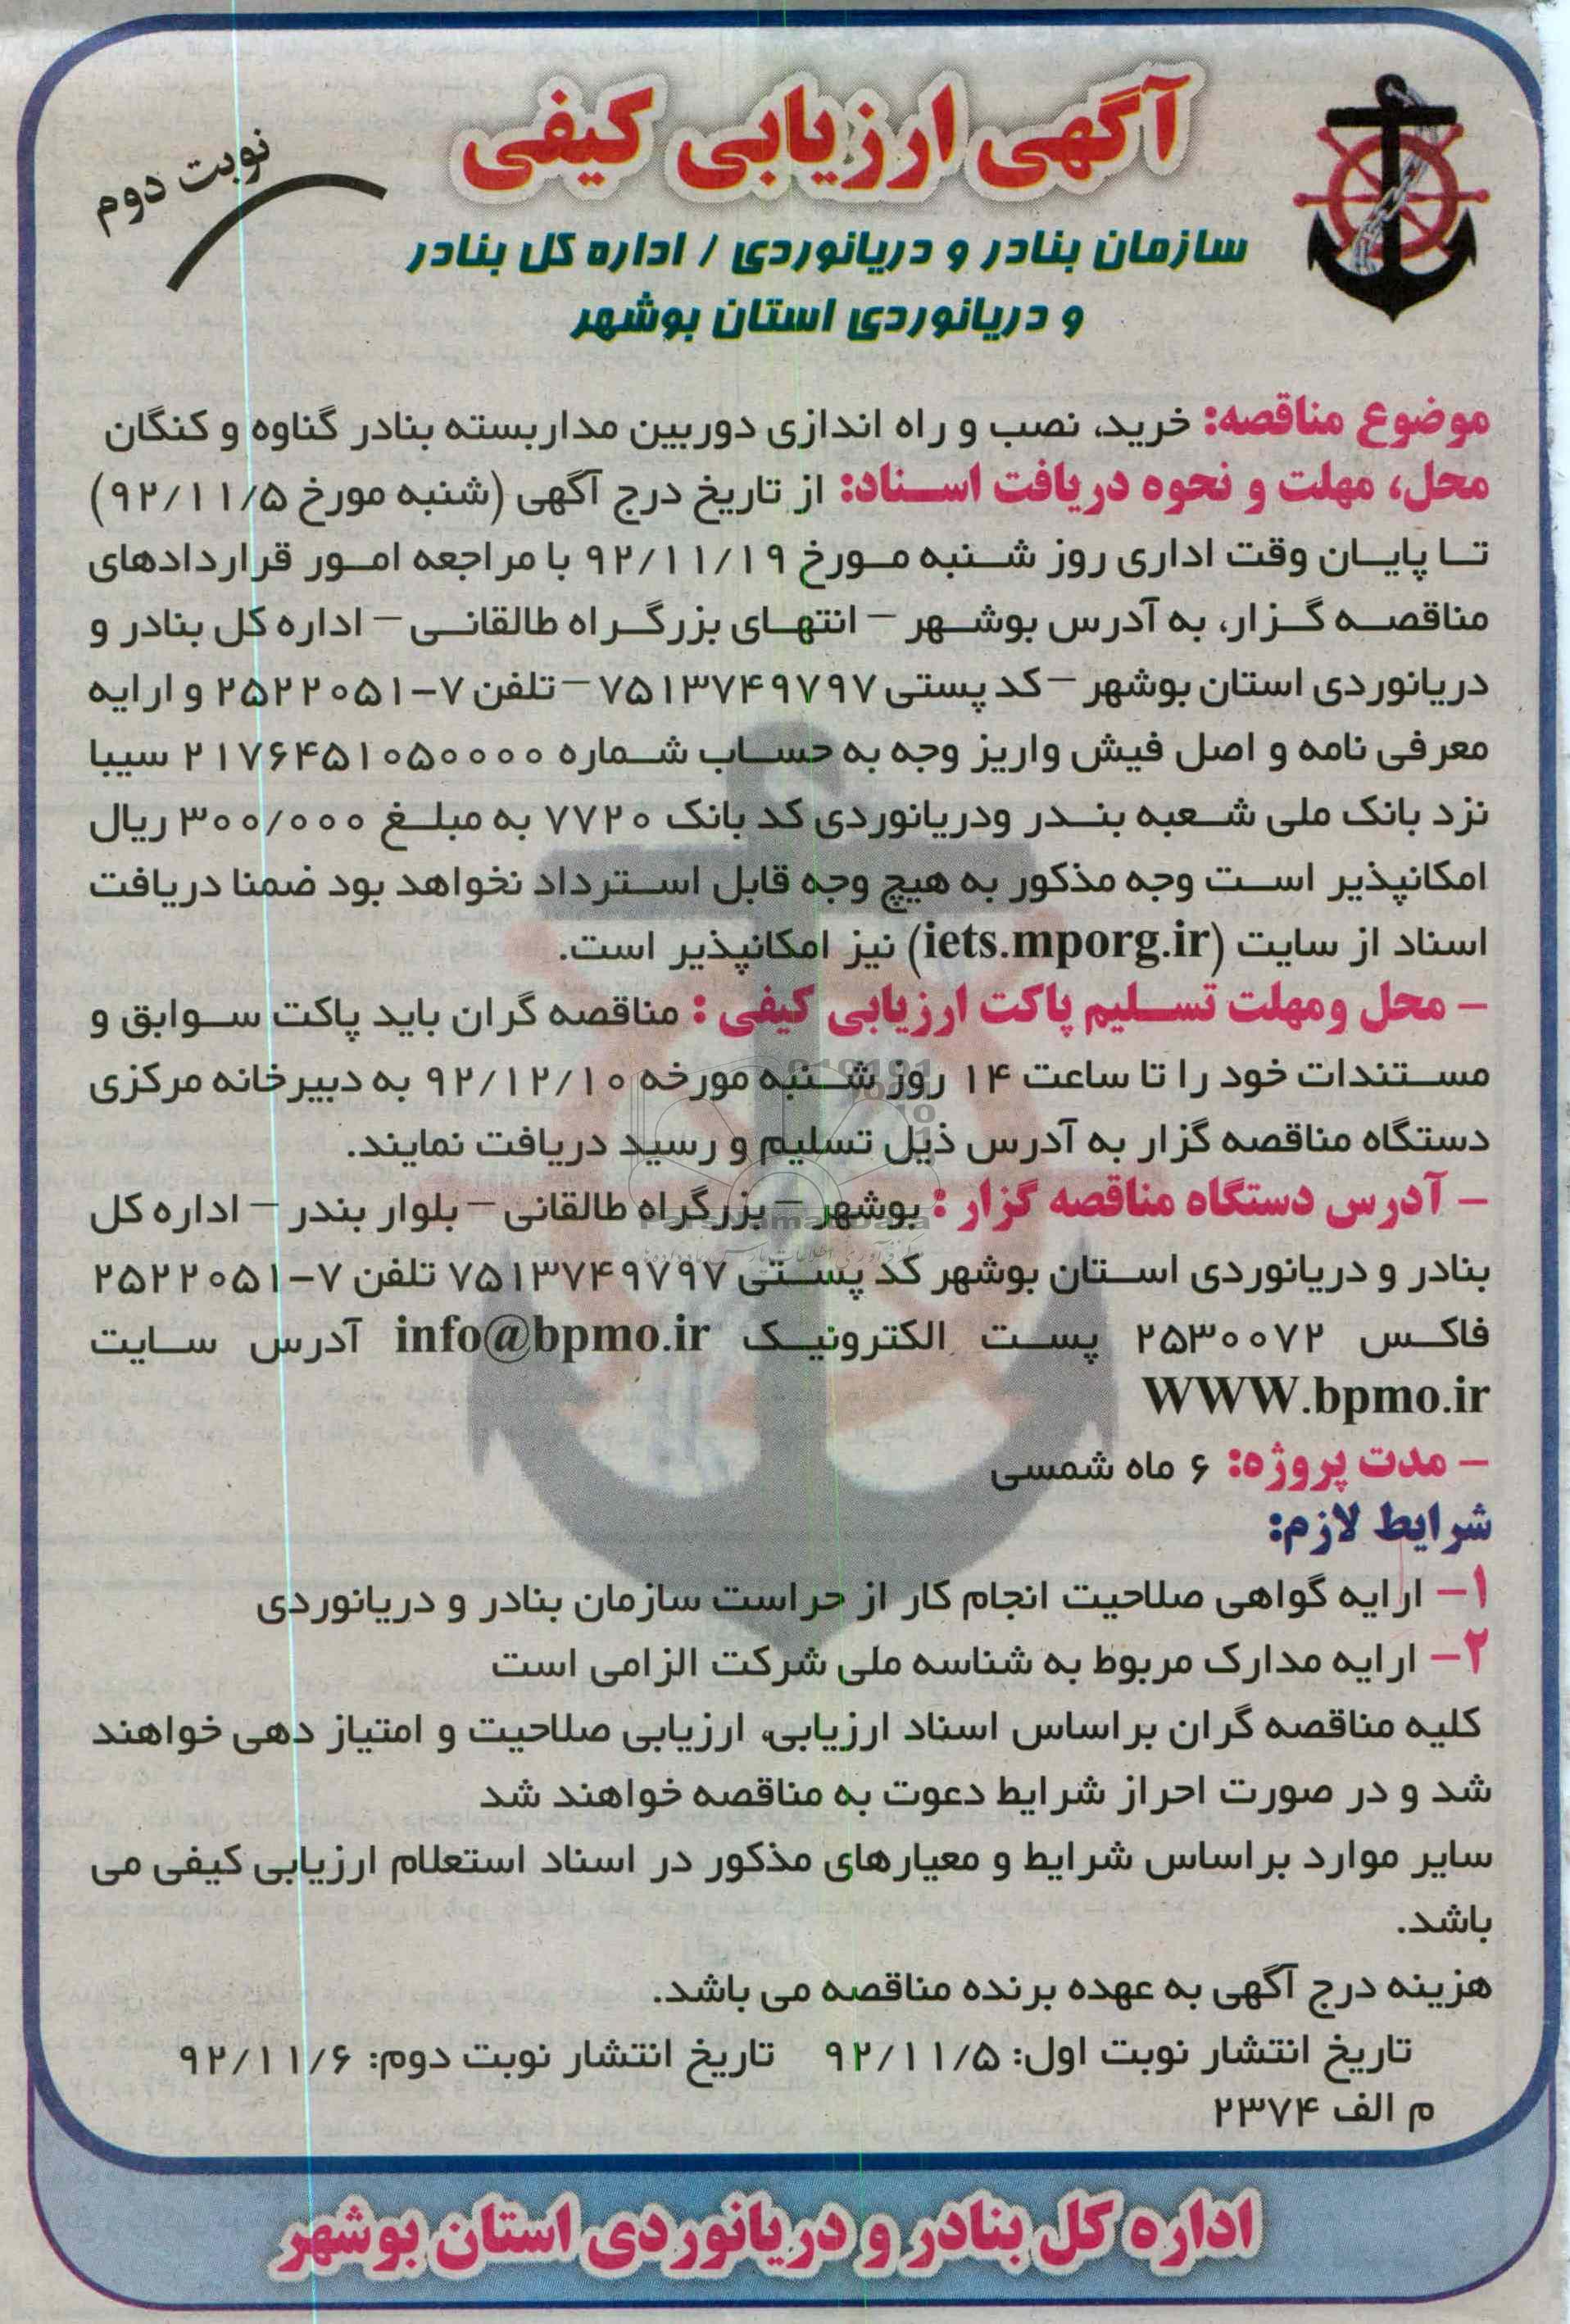 آگهی ارزیابی کیفی
نوبت دوم
سازمان بنادر و دریانوردی / اداره کل بنادر
و دریانوردی استان بوشهر
موضوع مناقصه: خرید، نصب و راه اندازی دوربین مداربسته بنادر گناوه و کنگان
محل، مهلت و نحوه دریافت اسـناد: از تاریخ درج آگهی (شنبه مورخ ۹۲/۱۱/۵)
تا پایان وقت اداری روز شنبه مورخ ۹۲/۱۱/۱۹ با مراجعه امور قراردادهای
مناقصه گزار، به آدرس بوشهر – انتهای بزرگراه طالقانی – اداره کل بنادر و
دریانوردی استان بوشهر – کد پستی ۷۵۱۳۷۴۹۷۹۷ – تلفن ۷-۲۵۲۲۰۵۱ و ارایه
معرفی نامه و اصل فیش واریز وجه به حساب شماره ۲۱۷۶۴۵۱۰۵۰۰۰۰ سیبا
نزد بانک ملی شعبه بندر ودریانوردی کد بانک ۷۷۲۰ به مبلغ ۳۰۰/۰۰۰ ریال
امکانپذیر است وجه مذکور به هیچ وجه قابل استرداد نخواهد بود ضمنا دریافت
اسناد از سایت (iets.mporg.ir) نیز امکانپذیر است.
– محل ومهلت تسلیم پاکت ارزیابی کیفی : مناقصه گران باید پاکت سوابق و
مستندات خود را تا ساعت ۱۴ روز شنبه مورخه ۹۲/۱۲/۱۰ به دبیرخانه مرکزی
دستگاه مناقصه گزار به آدرس ذیل تسلیم و رسید دریافت نمایند.
– آدرس دستگاه مناقصه گزار : بوشهر – بزرگراه طالقانی – بلوار بندر – اداره کل
بنادر و دریانوردی استان بوشهر کد پستی ۷۵۱۳۷۴۹۷۹۷ تلفن ۷-۲۵۲۲۰۵۱
فاکس ۲۵۳۰۰۷۲ پست الکترونیک info@bpmo.ir آدرس سایت
WWW.bpmo.ir
– مدت پروژه: ۶ ماه شمسی
شرایط لازم:
۱– ارایه گواهی صلاحیت انجام کار از حراست سازمان بنادر و دریانوردی
۲– ارایه مدارک مربوط به شناسه ملی شرکت الزامی است
کلیه مناقصه گران براساس اسناد ارزیابی، ارزیابی صلاحیت و امتیاز دهی خواهند
شد و در صورت احراز شرایط دعوت به مناقصه خواهند شد
سایر موارد براساس شرایط و معیارهای مذکور در اسناد استعلام ارزیابی کیفی می
باشد.
هزینه درج آگهی به عهده برنده مناقصه می باشد.
تاریخ انتشار نوبت اول: ۹۲/۱۱/۵ تاریخ انتشار نوبت دوم: ۹۲/۱۱/۶
م الف ۲۳۷۴
اداره کل بنادر و دریانوردی استان بوشهر